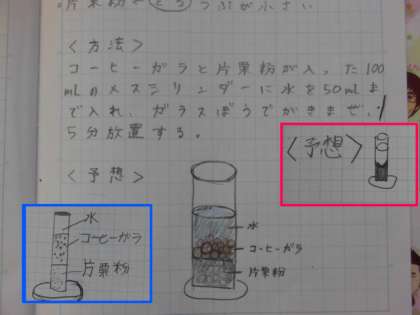 片栗粉 とろ つぶが小さい
<方法>
コーヒーガラと片栗粉が入った100
mLのメスシリンダーに水を50mLま
で入れ、ガラスぼうでかきまぜ、
5分放置する。
<予想>
<予想>
水
コーヒーガラ
片栗粉
水
コーヒーガラ
片栗粉